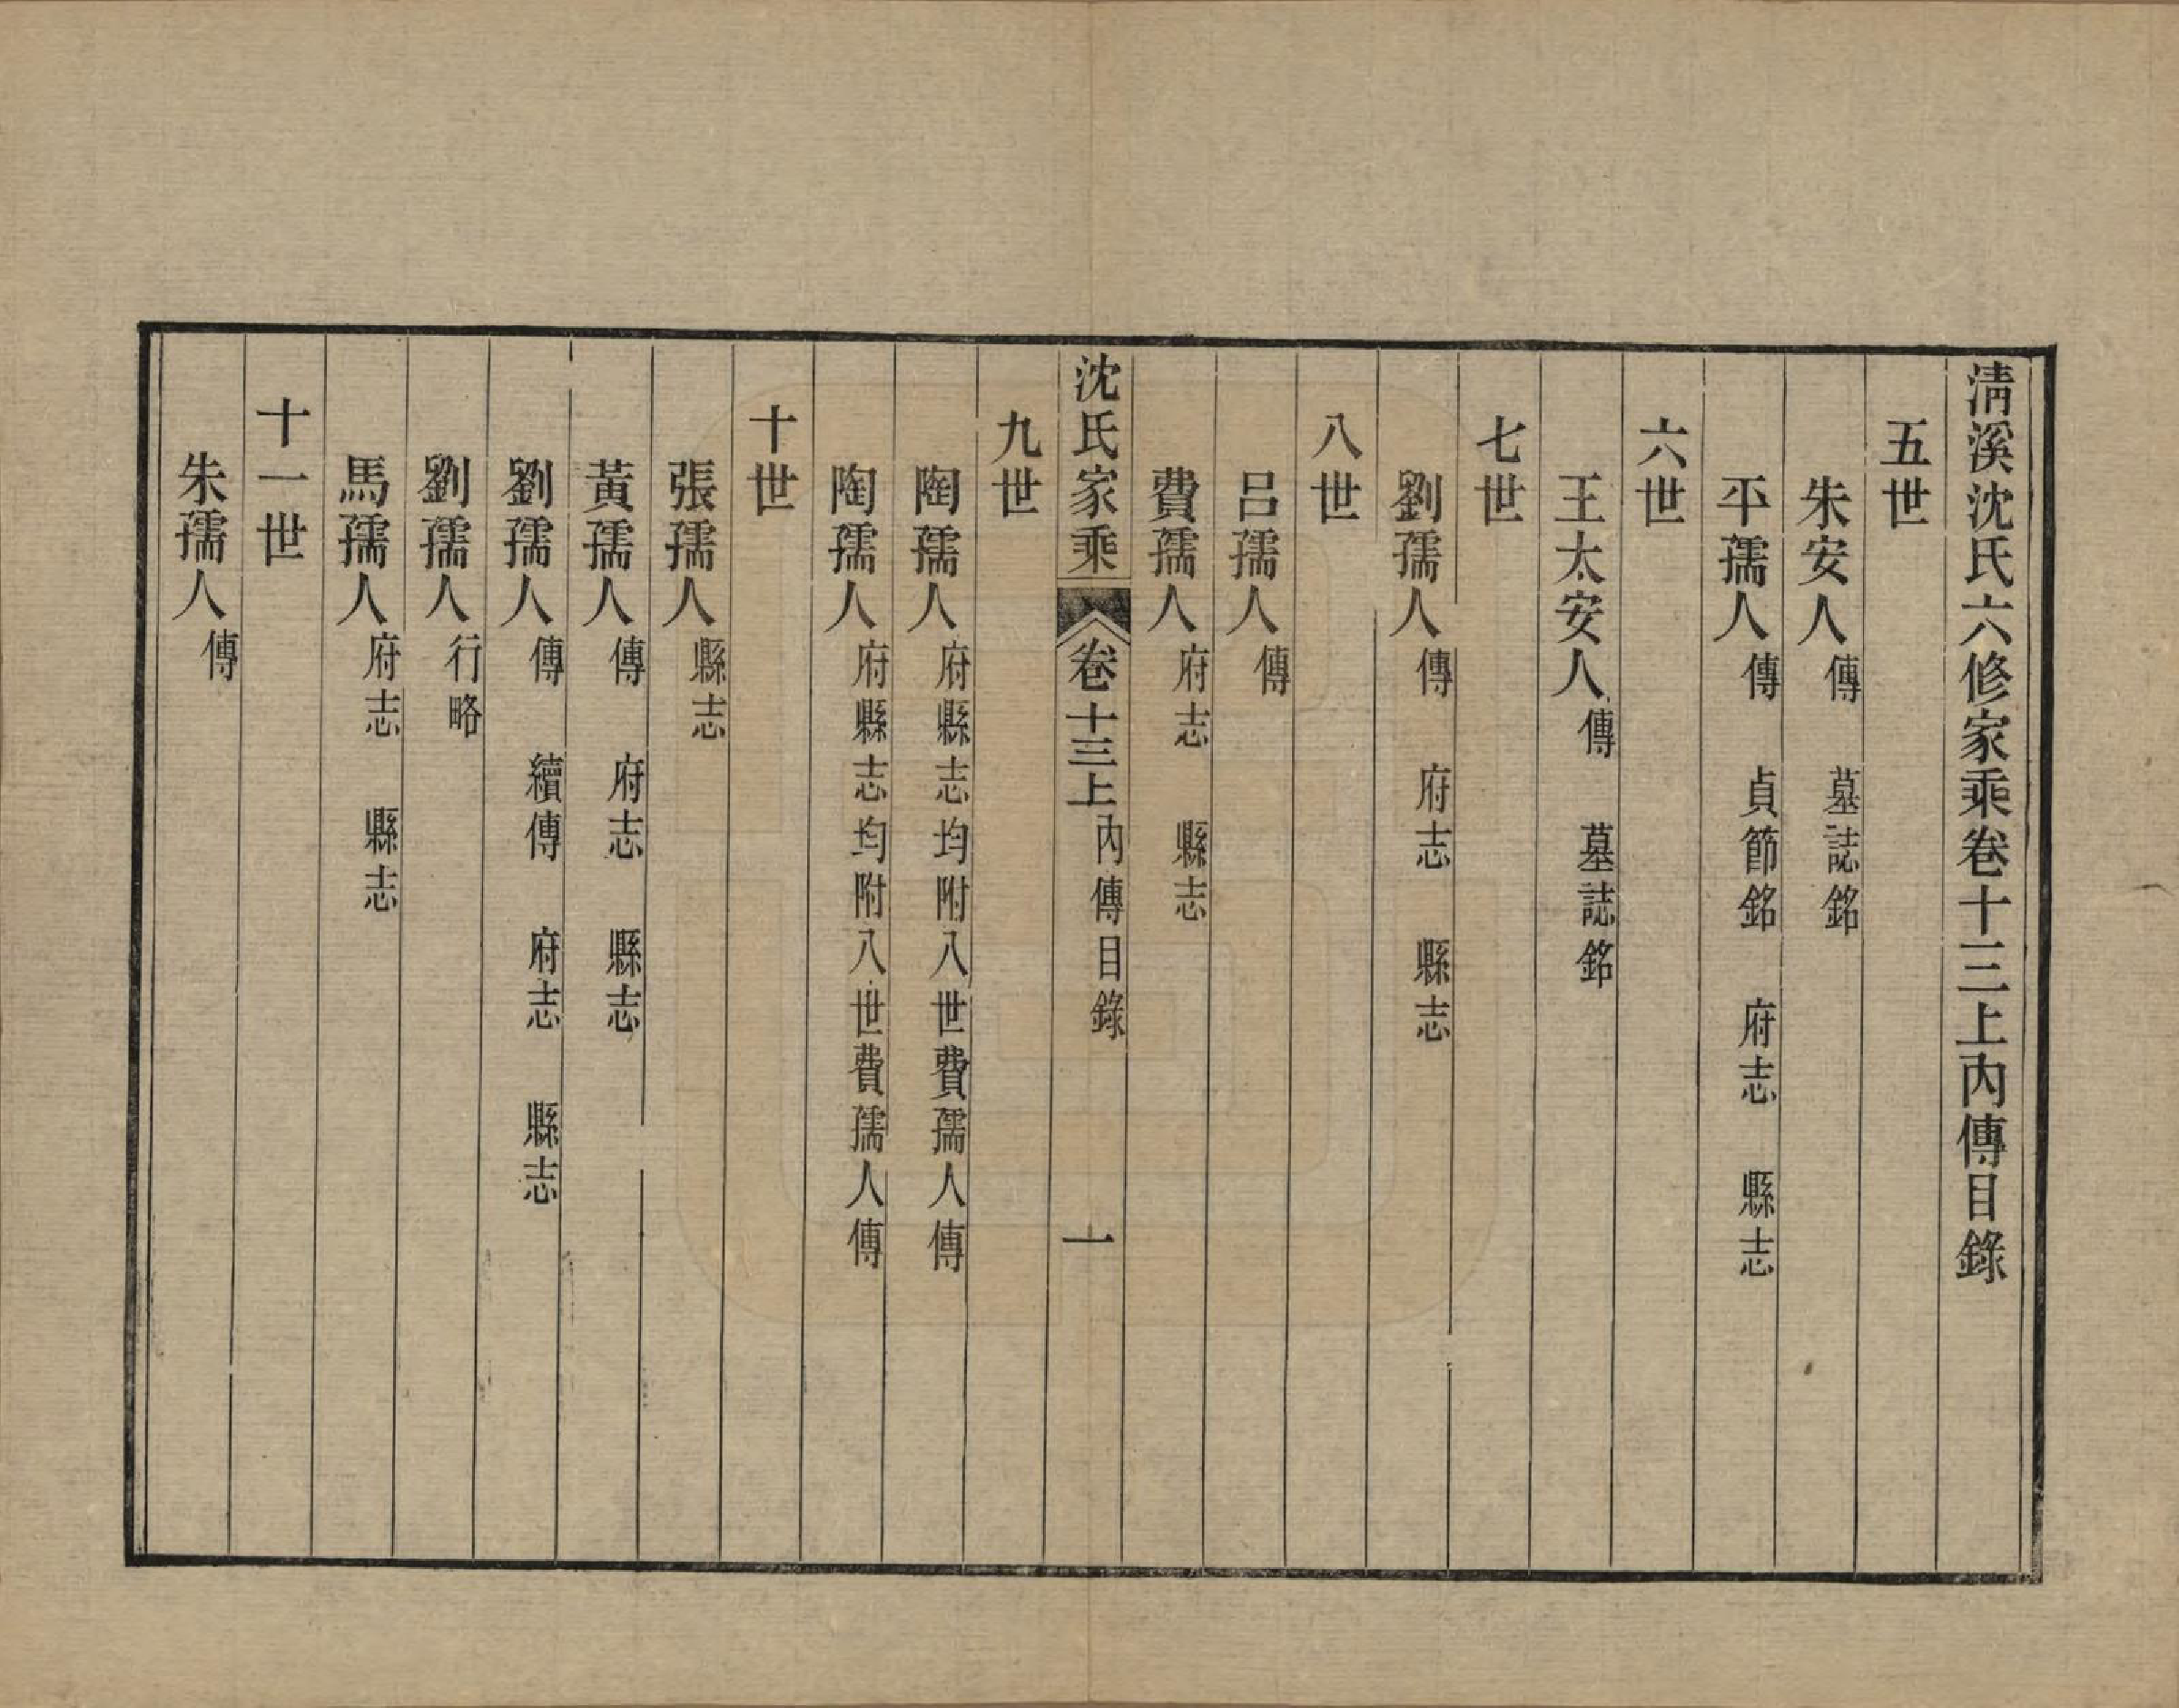 清溪沈氏六修家乘卷十三上內傳目錄
五世
朱安人傳　墓誌銘
平孺人傳　貞節銘　府志　縣志
六世
王太安人傳　墓誌銘
七世
劉孺人傳　府志　縣志
八世
呂孺人傳
費孺人府志　縣志
沈氏家乘　卷十三上內傳目錄　一
九世
陶孺人府縣志均附八世費孺人傳
陶孺人府縣志均附八世費孺人傳
十世
張孺人縣志
黃孺人傳　府志　縣志
劉孺人傳　續傳　府志　縣志
劉孺人行略
馬孺人府志　縣志
十一世
朱孺人傳